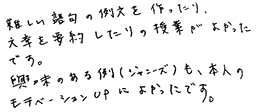 難しい語句の例文を作ったり、
文章を要約したりの授業がよかった
です。
興味のある例(ジャニーズ)も、本人の
モチベーションUPによよかったです。